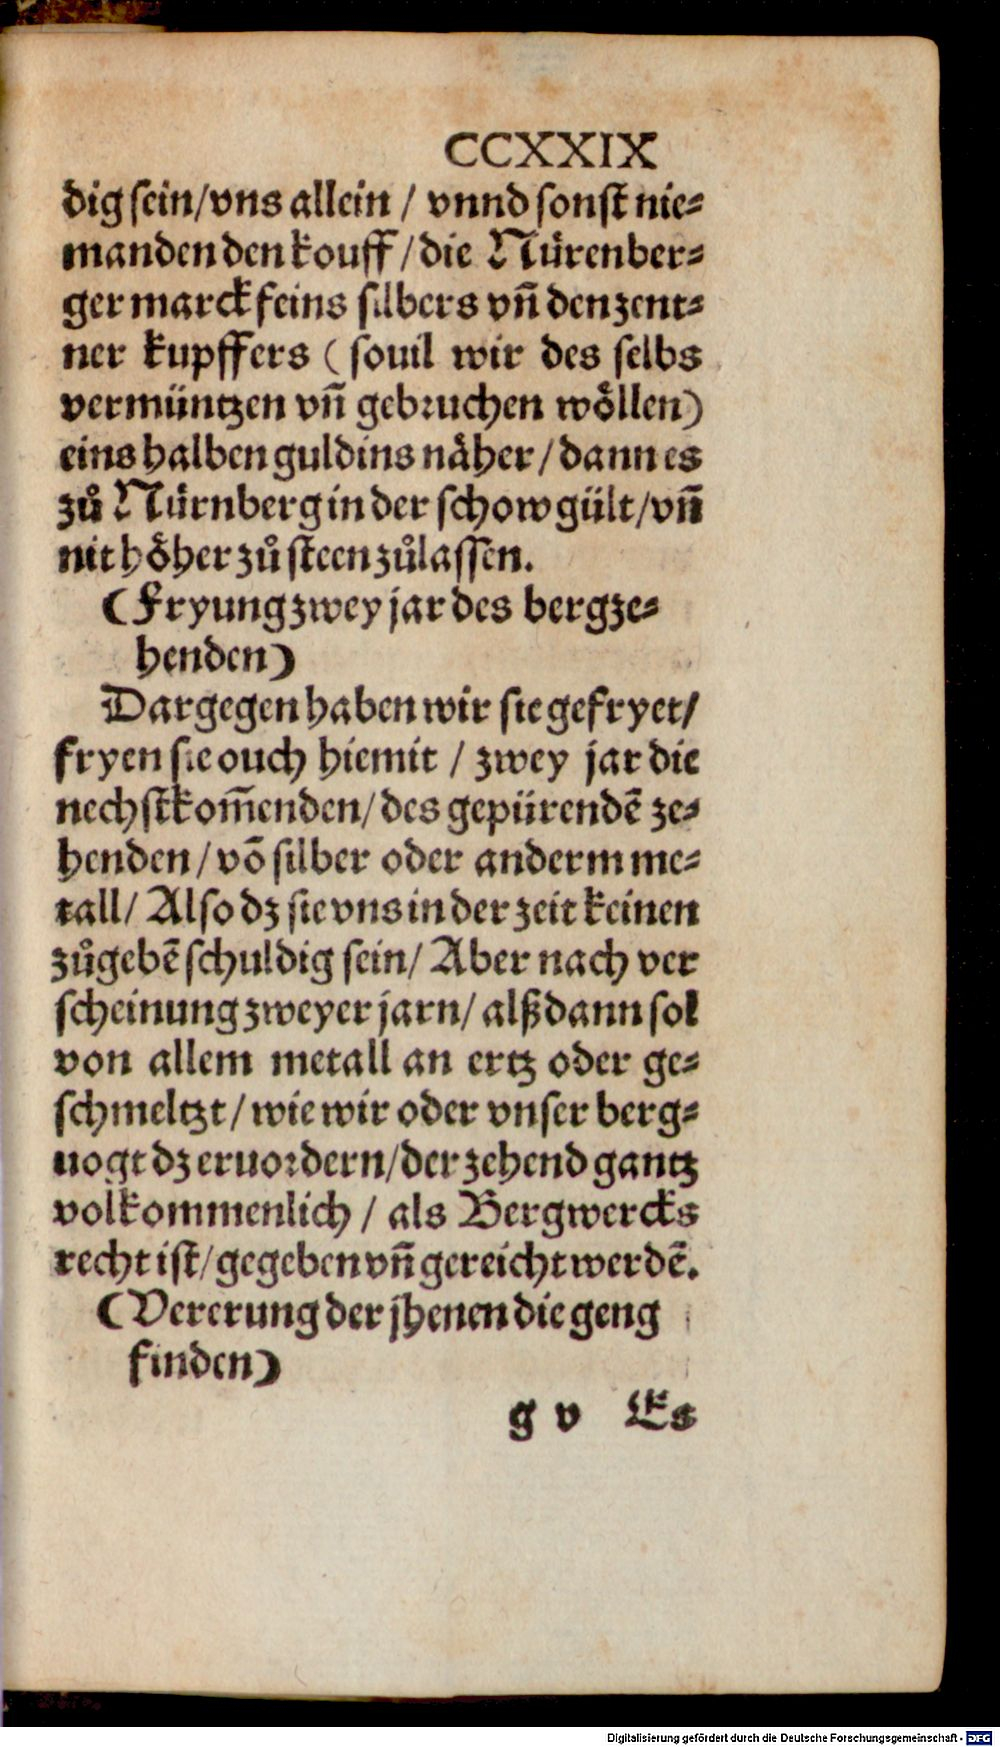 CCXXIX
dig sein/vns allein / vnnd sonst nie⸗
manden den kouff / die Nürenber⸗
ger marck feins silbers vn̄ den zent⸗
ner kupffers ( souil wir des selbs
vermüntzen vn̄ gebꝛuchen wöllen)
eins halben guldins näher / dann es
zů Nürnberg in der schow gült/vn̄
nit höher zů steen zůlassen.
(Fryung zwey jar des bergze⸗
henden)
Dargegen haben wir sie gefryet/
fryen sie ouch hiemit / zwey jar die
nechstkom̄enden/ des gepürendē ze⸗
henden / vō silber oder anderm me⸗
tall/ Also dz sie vns in der zeit keinen
zůgebē schuldig sein/ Aber nach ver
scheinung zweyer jarn/ alßdann sol
von allem metall an ertz oder ge⸗
schmeltzt / wie wir oder vnser berg⸗
uogt dz eruoꝛdern/der zehend gantz
volkommenlich / als Bergwercks
recht ist/ gegeben vn̄ gereicht werdē.
(Vererung der jhenen die geng
finden)
g v Es
Digitalisierung gefördert durch die Deutsche Forschungsgemeinschaft - DFG